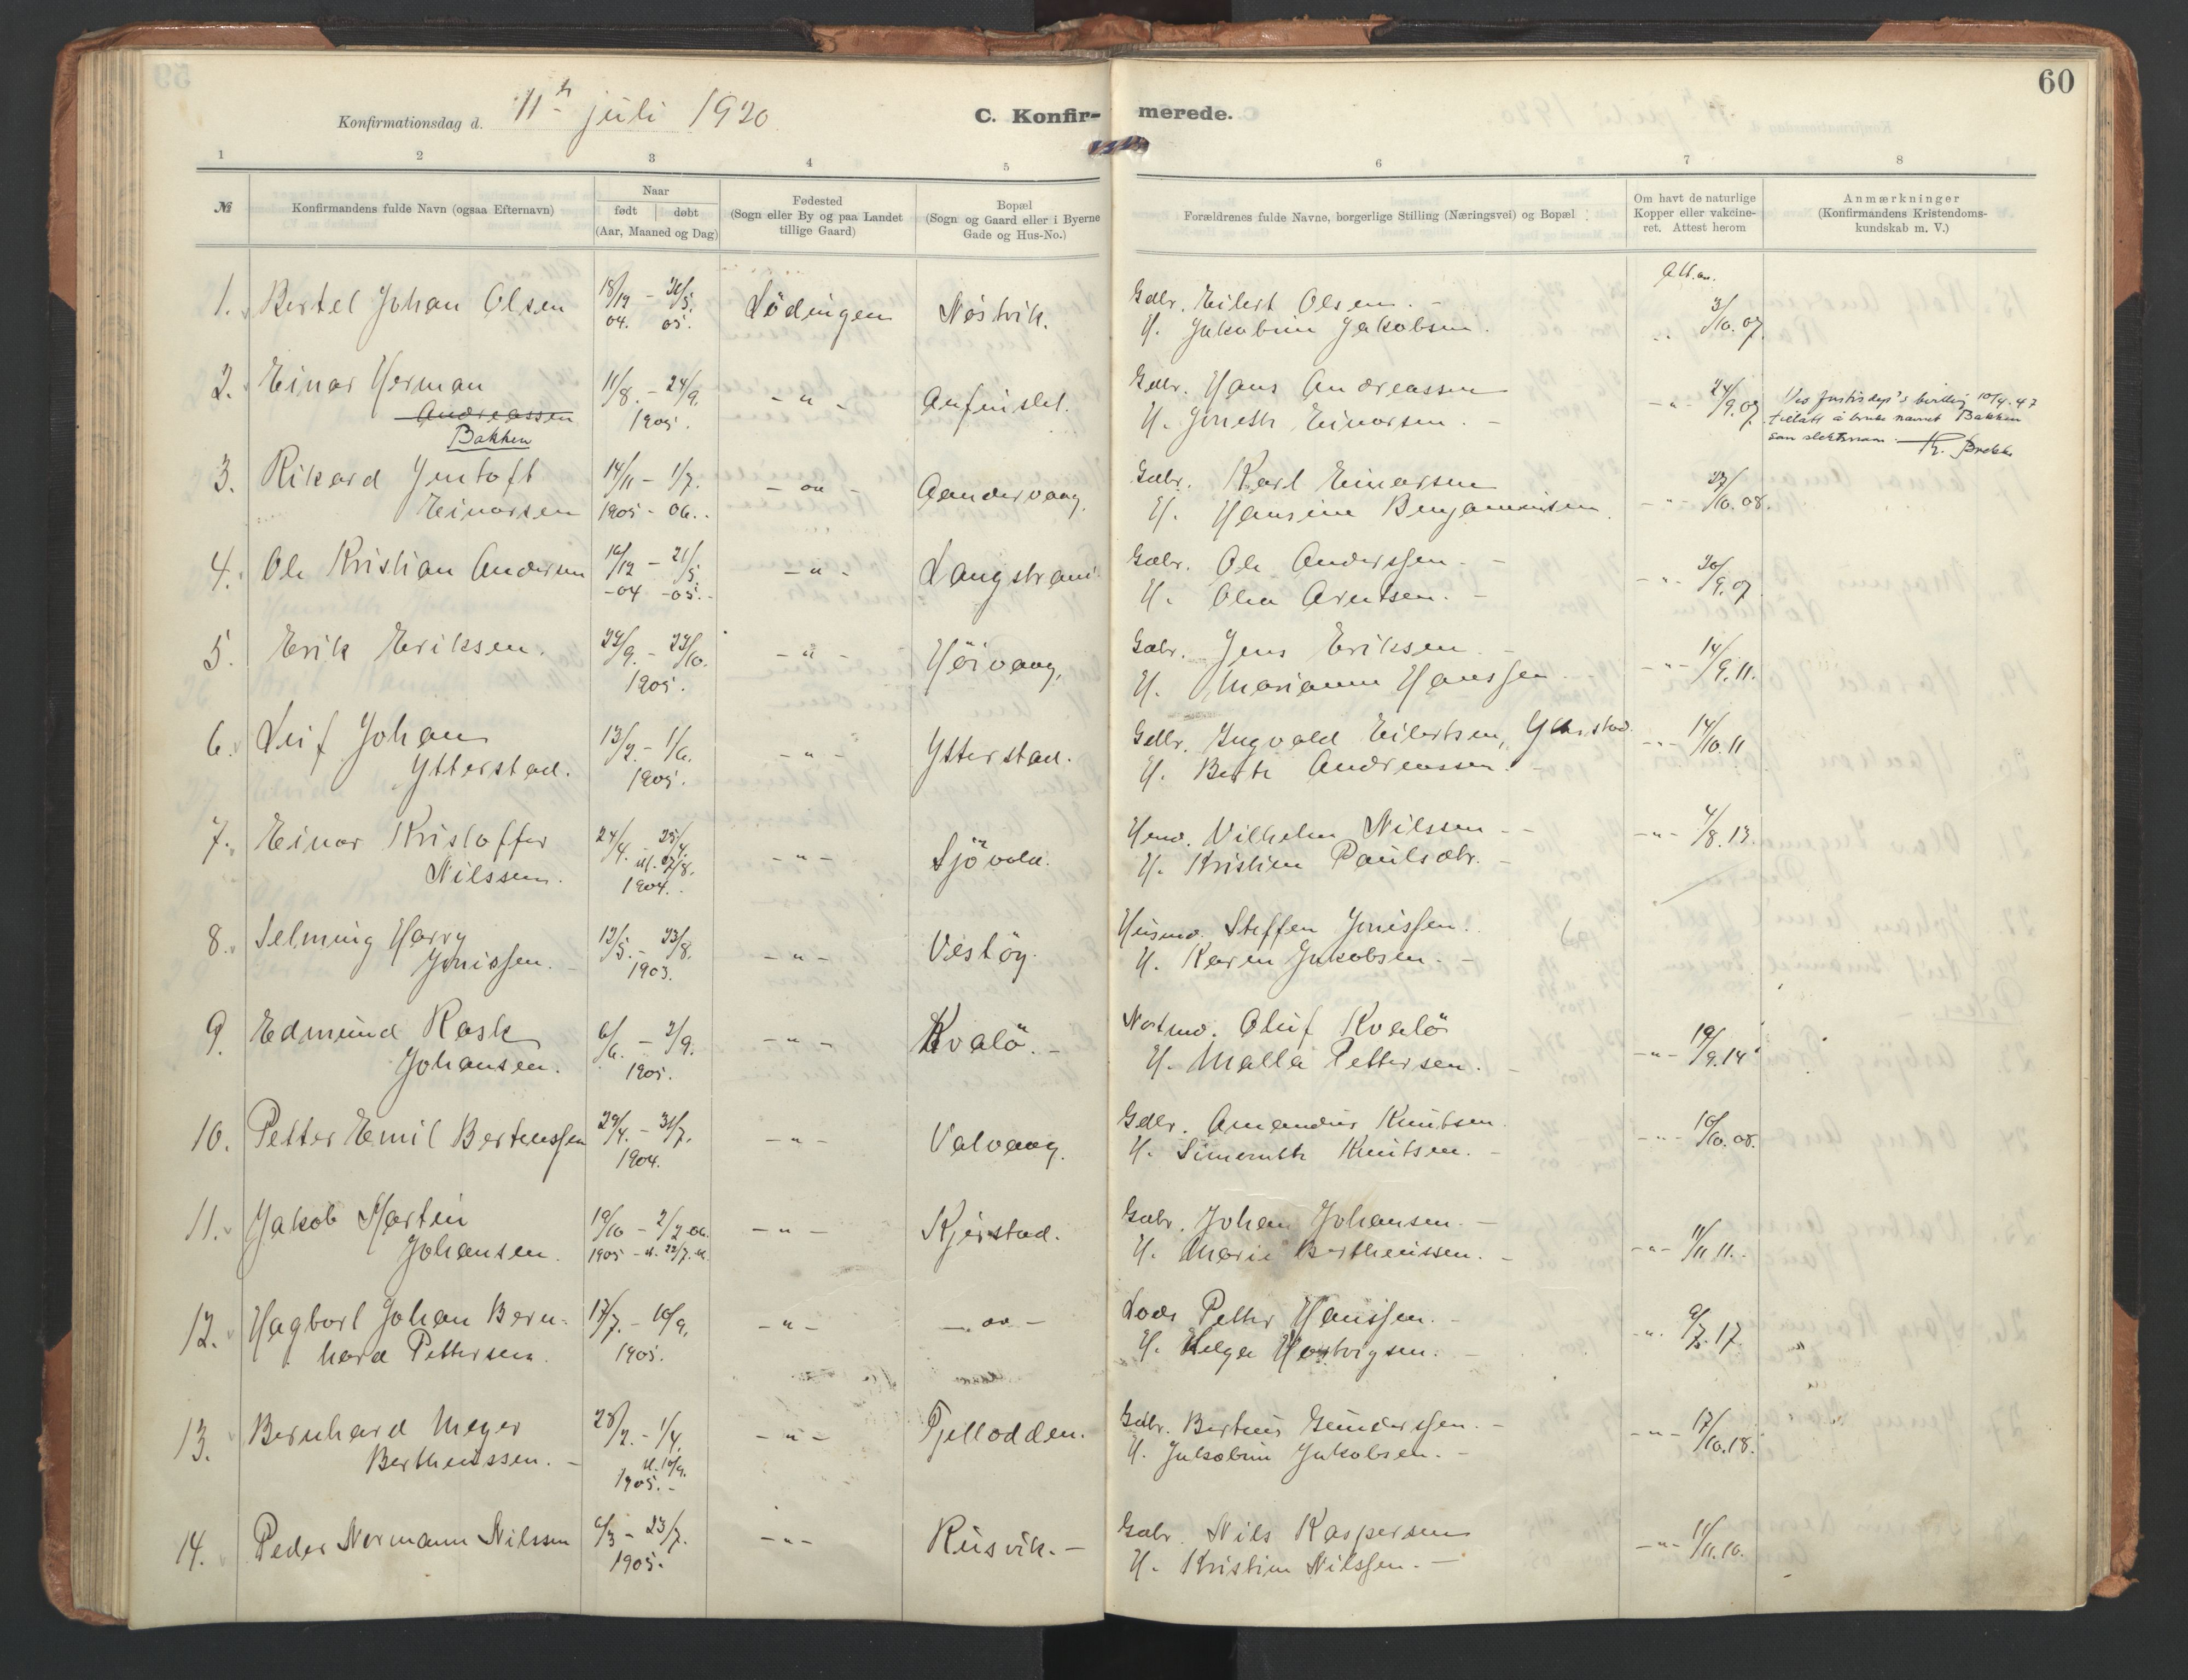 60
Konfirmationsdag d. 11te juli 1920
C. Konfir-
merede.
1 2 3 4 5 6 7 8
№
Konfirmandens fulde Navn (ogsaa Efternavn)
Naar
født døbt
(Aar, Maaned og Dag)
Fødested
(Sogn eller By og paa Landet
tillige Gaard)
Bopæl
(Sogn og Gaard eller i Byerne
Gade og Hus-No.)
Forældrenes fulde Navne, borgerlige Stilling (Næringsvei) og Bopæl
Om havt de naturlige
Kopper eller vakcine-
ret. Attest herom
Anmærkninger
(Konfirmandens Kristendoms-
kundskab m. V.)
1. Bertel Johan Olsen 18/12 - 21/5. Lödingen Nöstvik. Gdbr. Eilert Olsen. - Att. av. 3/10.07
04. 05. H. Jakobine Jakobsen.
2. Einar Herman 11/8. - 24/9. - " - Anfinslet. Gdbr. Hans Andreassen - " - 24/9.07
Andreassen 1905. H. Jineth Einarsen. -
Bakken
Ved justisdep's bevilling 10/4.47
tillatt å bruke navnet Bakken
som slektsnavn.
3. Rikard Jentoft 14/11 - 1/7. - " - Aandervaag. Gdbr. Karl Einarsen - " - 10.08.
Einarsen 1905 - 06. H. Hansine Benjaminsen.
4. Ole Kristian Andersen 16/12 - 21/5. - " - Langstrand Gdbr. Ole Anderssen. - - " - 30/9.07
-04 -05. H. Olea Arntsen. -
5. Erik Eriksen. 22/9. - 23/10. - " - Höivaag, Gdbr. Jens Eriksen. - - " - 14/9.11.
1905. H. Marianne Hanssen
6. Leif Johan 13/2. - 1/6. - " - Ytterstad. Gdbr. Ingvald Eilertsen, Ytterstad. - " - 14/10.11
Ytterstad. 1905. H. Berte Andreassen. -
7. Einar Kristoffer 24/4. - 25/4. - " - Sjövold. Hmd. Vilhelm Nilssen - - " - 4/8.13.
Nilssen. st. 27/8. H. Kristine Paulsdtr. -
1904.
8. Selming Harry 12/5. - 23/8. - " - Vestöy. Husmd. Steffen Jenissen.
Jenissen. 1903. H. Karen Jakobsen. -
9. Edmund Rask 6/6. - 3/9. - " - Kvalö. - Notmd. Oluf Kvalö - " - 19/9.14
Johansen. 1905. H. Malla Pettersen. -
10. Petter Emil Berteussen 29/4. - 31/7. - " - Valvaag. Gdbr. Amandus Knutsen. - " - 10/10.08.
1904. H. Simonette Knutsen. -
11. Jakob Martin 19/10 - 2/2.06. - " - Kjerstad. Gdbr. Johan Johansen. - - " - 11/11.11.
Johansen. 1905 - st. 22/7. H. Marie Bertheussen. -
12. Hagbart Johan Bern- 17/7. - 10/9. - " - - " - Lods Petter Hanssen. - - " - 9/7.17.
hard Pettersen. 1905. H. Helga Hartvigsen. -
13. Bernhard Meyer 28/2. - 1/4. - " - Fjellodden. Gdbr. Berteus Gunderssen. - - " - 17/10.18.
Bertheussen. - st. 10/9. H. Jakobine Jakobsen. -
1905. -
14. Peder Normann Nilssen 6/3 - 23/7. - " - Rusvik. - Gdbr. Nils Kaspersen - " - 11/11.10.
1905. H. Kristine Nilssen. -